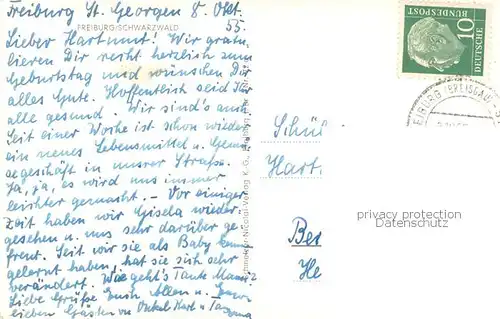 Freiburg St. Georgen 8. Okt. 55.
FREIBURG-SCHWARZWALD
Lieber Hartmut! Wir gratu-
lieren Dir recht herzlich zum
Geburtstag und wünschen Dir
alles Gute. Hoffentlich seid Ihr
alle gesund. Wir sind's auch.
Seit einer Woche ist schon wieder
ein neues Lebensmittel u. Gemüse
segeschäft in unsrer Straße.
Ja, ja, es wird uns immer
leichter gemacht. - Vor einiger
Zeit haben wir Gisela wieder-
gesehen u. uns sehr darüber ge-
freut. Seit wir sie als Baby kenn
gelernt haben, hat sie sich sehr
verändert. Wie geht's Tante
Liebe Grüße Euch Allen u.
lieben Gästen von Onkel Karl u. Tante
10
DEUTSCHE
BUNDESPOST
Schül
Hart
Ber
He
privacy protection
Datenschutz